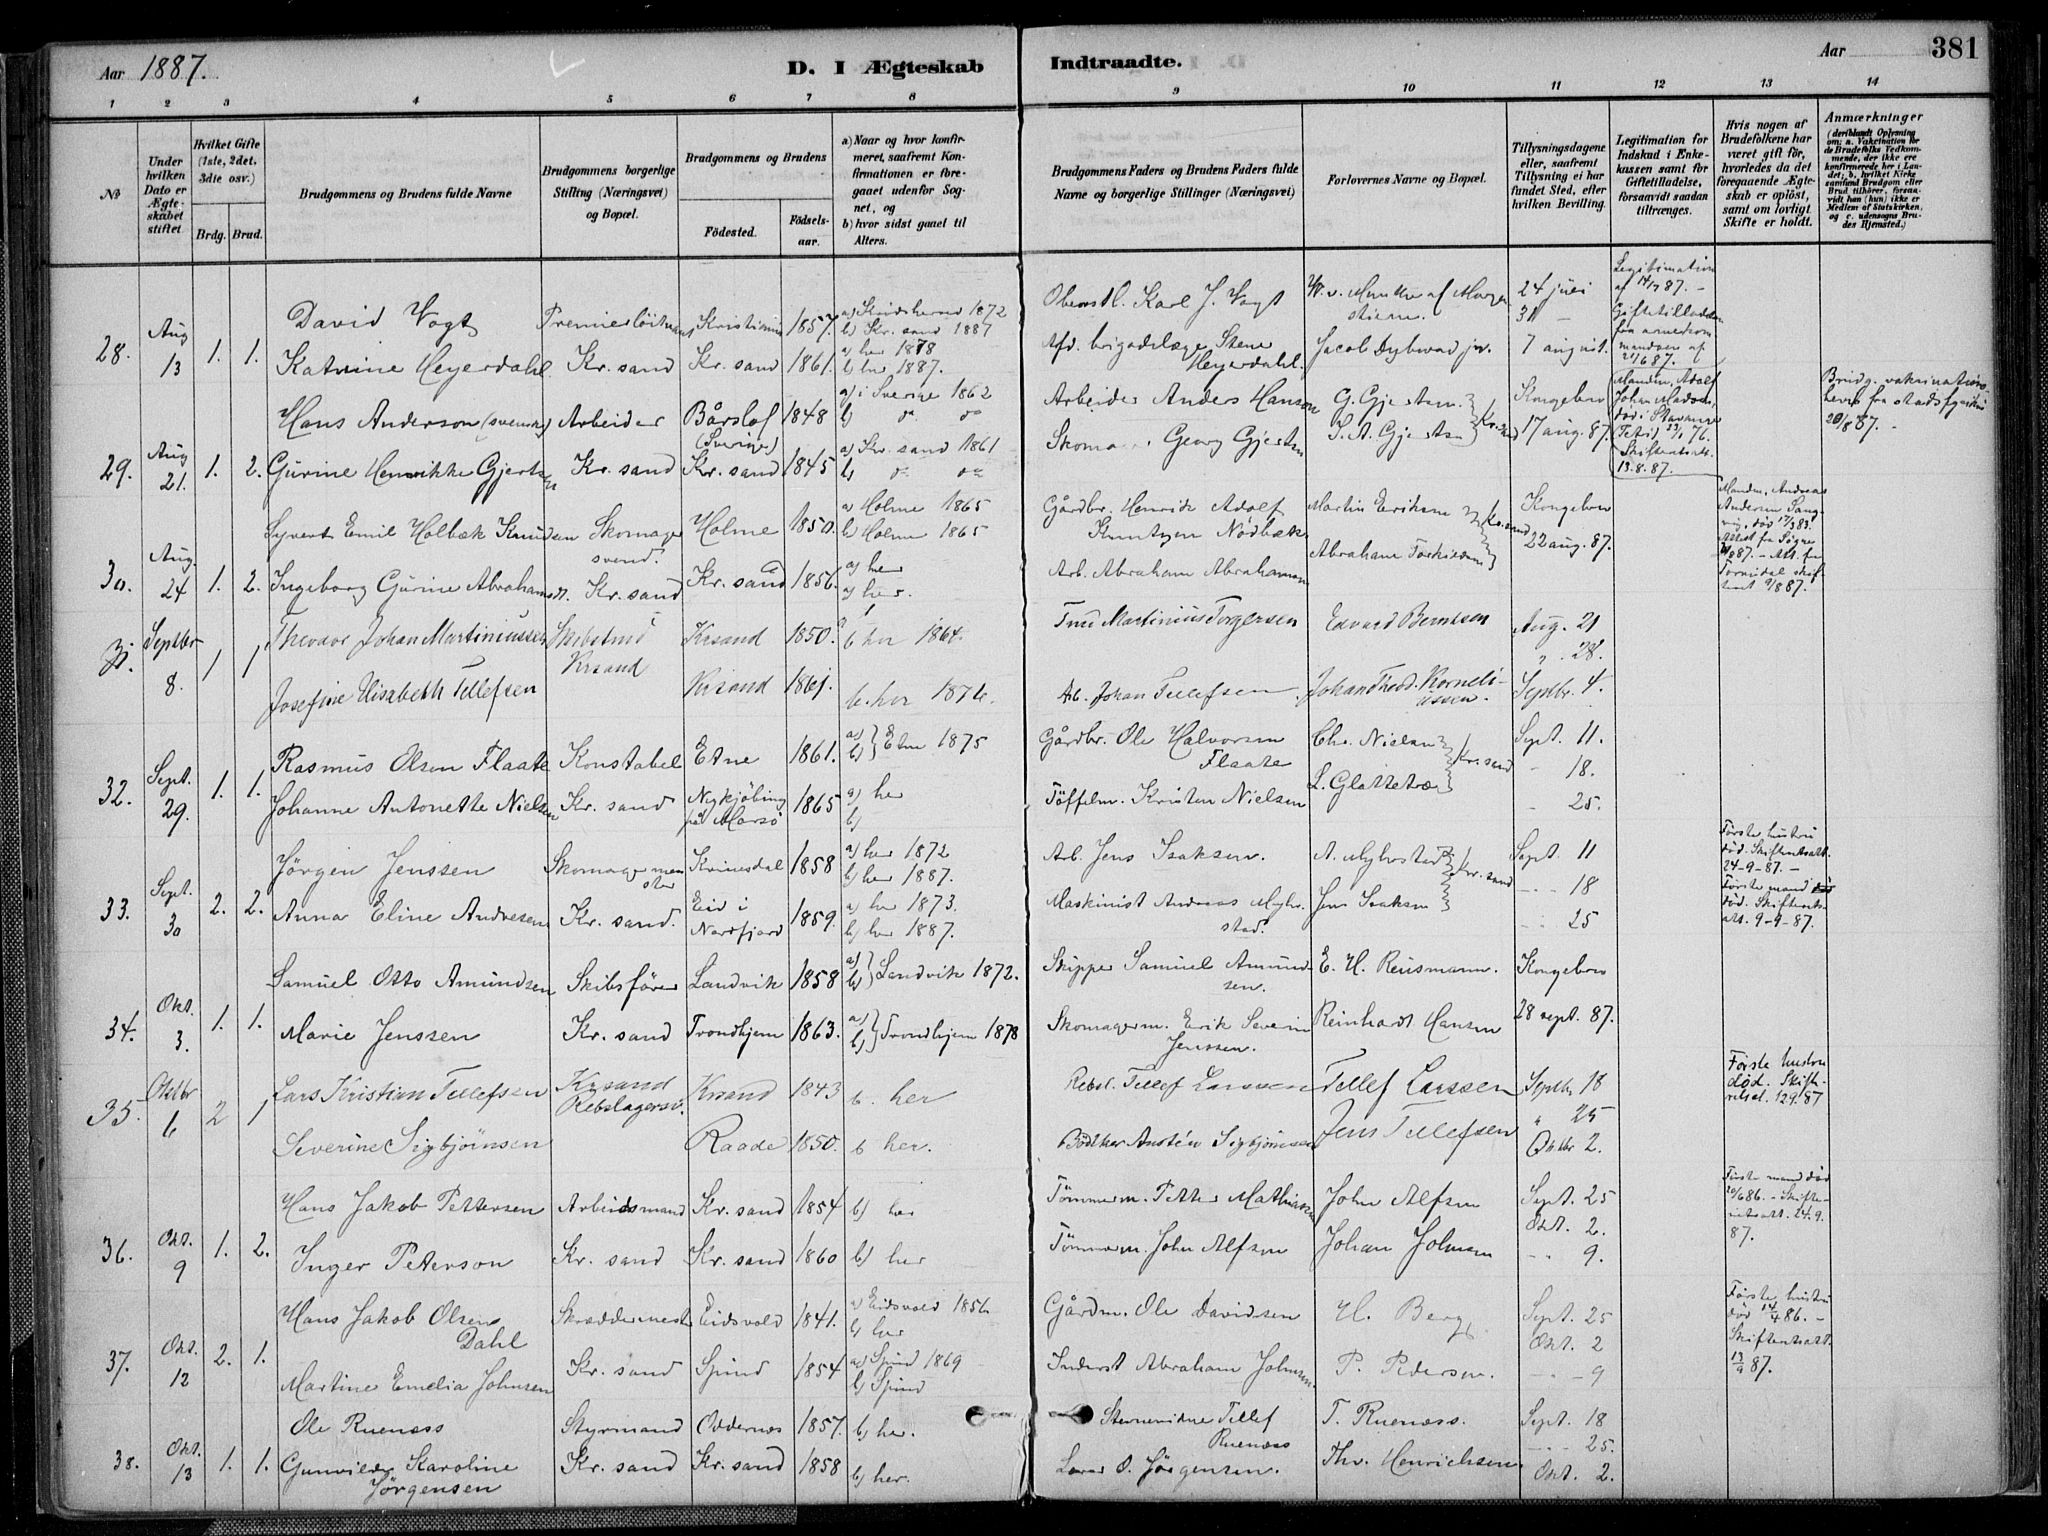 Aar 1887.
D. I Ægteskab
Indtraadte.
Aar
381
1 2 3 4 5 6 7 8 9 10 11 12 13 14
№
Under hvilken Dato er Ægteskabet stiftet
Hvilket Gifte (1ste, 2det, 3die osv.)
Brdg. Brud.
Brudgommens og Brudens fulde Navne
Brudgommens borgerlige Stilling (Næringsvei) og Bopæl.
Brudgommens og Brudens
Födested. Födsels-aar.
a) Naar og hvor konfirmeret, saafremt Konfirmationen er foregaaet udenfor Sognet, og
b) hvor sidst gaaet til Alters.
Brudgommens Faders og Brudens Faders fulde Navne og borgerlige Stillinger (Næringsvei)
Forlovernes Navne og Bopæl.
Tillysningsdagene eller, saafremt Tillysning ei har fundet Sted, efter hvilken Bevilling.
Legitimation for Indskud i Enkekassen samt for Giftetilladelse, forsaavidt saadan tiltrænges.
Hvis nogen af Brudefolkene har været gift för, hvorledes da det foregaaende Ægteskab er oplöst, samt om lovligt Skifte er holdt.
Anmærkninger (deriblandt Oplysning om: a. Vakcination for de Brudefolks Vedkommende, der ikke ere konfirmerede her i Landet; b. hvilket Kirkesamfund Brudgom eller Brud tilhörer, forsaavidt han (hun) ikke er Medlem af Statskirken, og c. udensogns Brudes Hjemsted.)
28. Aug 13 1. 1.
David Vogt Premierlöitnant Kristiania 1857. b) Kr. sand 1887 Oberstl. Karl J. Vogt 24 juli 31 -
Katrine Heyerdahl Kr. sand Kr. sand 1861. a) her 1878 b) her 1887. Afd. brigadelæge Stene Heyerdahl. Jacob Dybwad jr. 7 august.
Legitimation af 14/7 87. - Giftetilladelse fra armeekommandoen af 21/6 87.
29. Aug 21. 1. 2.
Hans Anderson (svensk) Arbeider Bårslöf (Sverige) 1848 a) i Sverige 1862 b) Arbeider Anders Hanson G. Gjertsen Kr. sand Kongebrev 17 aug. 87.
Gurine Henrikke Gjertsen Kr. sand Kr. sand 1845 a) Kr. sand 1861 b) Georg Gjertsen S. A. Gjertsen
Manden, Adolf Johan Madsen, död i Stavanger 23/1 76. Skifteatt. 13.8.87.
Brudg. vakcinationsbevis fra stadsfysikus 20/8 87. -
30. Aug. 24 1. 2.
Syvert Emil Holbæk Knudsen Skomagersvend. Holme 1850. a) Holme 1865 b) Holme 1865 Gårdbr. Henrik Adolf Knutzen Nödbæk Martin Eriksen Kr. sand Kongebrev 22 aug. 87.
Ingeborg Gurine Abrahamsen. Kr. sand Kr. sand 1856. a) her b) her. Arb. Abraham Abrahamsen Abraham Torkildsen
31. Septbr 8. 1 1
Thevdor Johan Martiniussen Skibstmd Krsand Krsand 1850. b her 1864. Martinius Torgersen Edvard Berntsen Aug. 21 " 28.
Josefine Elisabeth Tellefsen Krsand 1861. b. her 1876. Ab. Johan Tellefsen Johan Theod. Korneliussen. Septbr. 4.
32. Sept. 29. 1. 1.
Rasmus Olsen Flaate Konstabel Etne 1861. a) b) Etne 1875 Gårdbr. Ole Halvorsen Flaate Chr. Nielsen Kr. sand Sept. 11. - 18.
Johanne Antonette Nielsen Kr. sand Nykjöbing på Morsö 1865 a) her b) Töffelm. Kristen Nielsen L. Glattetræ - 25.
33. Sept. 30 2. 2.
Jörgen Jenssen Skomagermester Kvinesdal 1858 a) her 1872 b) her 1887. Arb. Jens Isaksen. A. Myhrstad Kr. sand Sept. 11 - 18
Anna Eline Andresen Kr. sand. Eid i Nordfjord 1859. a) her 1873. b) her 1887. Maskinist Andreas Myhrstad. Jens Isaksen - 25
Förste hustru död. Skifteretsatt. 24-9-87. - Förste mand död. Skifterets att. 9-9-87.
34. Okt. 3. 1. 1.
Samuel Otto Amundsen Skibsförer Landvik 1858 a) b) Landvik 1872. Skipper Samuel Amundsen. E. H. Reusmann. Kongebrev 28 sept. 87.
Marie Jenssen Kr. sand Trondhjem 1863. a) b) Trondhjem 1878 Skomagerm. Erik Severin Jenssen. Reinhardt Hansen
35. Oktbr 6 2 1
Lars Kristian Tellefsen Krsand Rebslagersv. Krsand 1843 b. her Rebsl. Tellef Larssen Tellef Larssen Septbr 18 " 25
Severine Sigbjörnsen Raade 1850. b her. Bödker Austen Sigbjörnsen Jens Tellefsen Oktbr 2.
Første hustru død. Skifteretsat. 12 9. 87
36. Okt. 9 1. 2.
Hans Jakob Pettersen Arbeidsmand Kr. sand 1854 b) her Tömmerm. Petter Mathiasen John Alfsen Sept. 25 Okt. 2.
Inger Peterson Kr. sand Kr. sand 1860 b) her Tömmerm. John Alfsen Johan Johnsen - 9.
Förste mand död 20/6 86. - Skifteretsatt. 24.9. 87.
37. Okt. 12 2. 1.
Hans Jakob Olsen Dahl Skræddermest Eidsvold 1841. a) Eidsvold 1856 b) her Gårdm. Ole Davidsen H. Berg. Sept. 25 Okt. 2
Martine Emelia Johnsen Kr. sand Spind 1854 a) Spind 1869 b) Spind Inderst Abraham Johnsen. P. Pedersen. - 9
Förste hustru död 14/4 86. - Skifteretsatt. 13/9 87.
38. Okt. 13 1. 1.
Ole Ruenæss Styrmand Oddernæs 1857. b) her. Tellef Ruenæss T. Ruenæss. Sept. 18 - 25.
Gunvilde Karoline Jörgensen Kr. sand Kr. sand 1858 b) her. O. Jörgensen. Thv. Henrichsen Okt. 2.